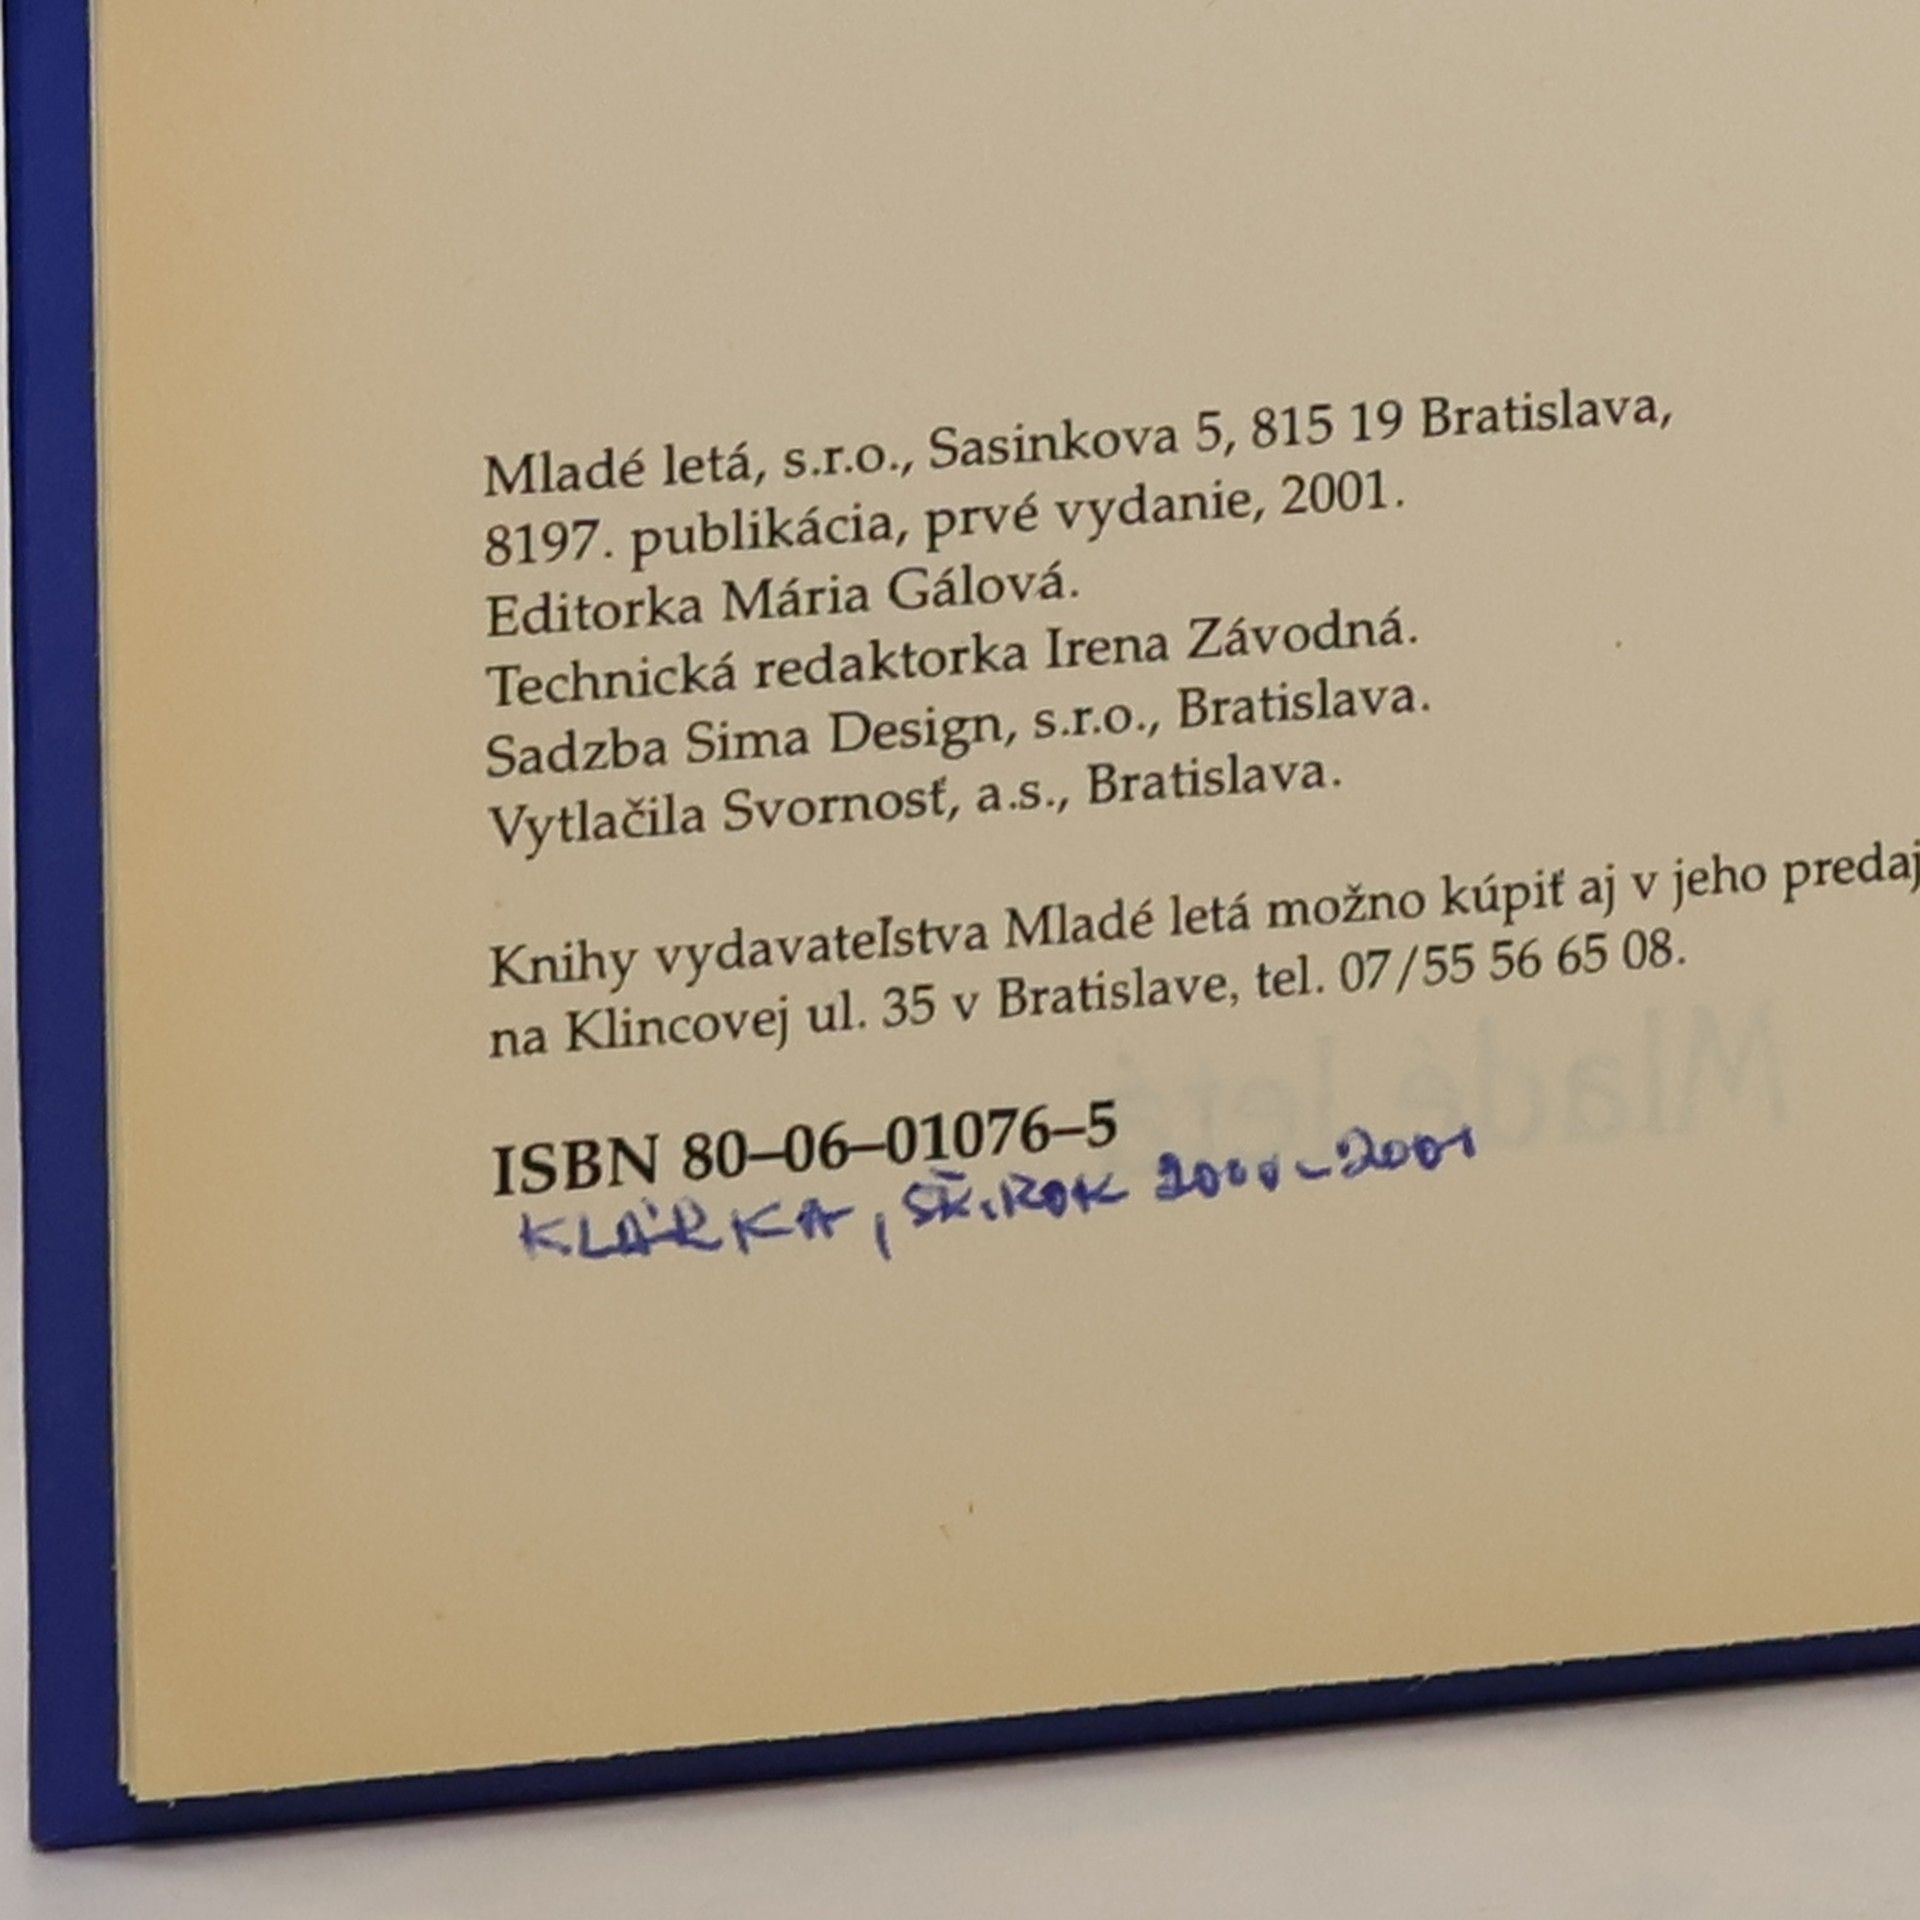 Mladé letá, s.r.o., Sasinkova 5, 815 19 Bratislava,
8197. publikácia, prvé vydanie, 2001.
Editorka Mária Gálová.
Technická redaktorka Irena Závodná.
Sadzba Sima Design, s.r.o., Bratislava.
Vytlačila Svornosť, a.s., Bratislava.
Knihy vydavateľstva Mladé letá možno kúpiť aj v jeho predaj
na Klincovej ul. 35 v Bratislave, tel. 07/55 56 65 08.
Mladé letá
ISBN 80–06–01076–5
KLÁRKA, ŠK. ROK 2000–2001